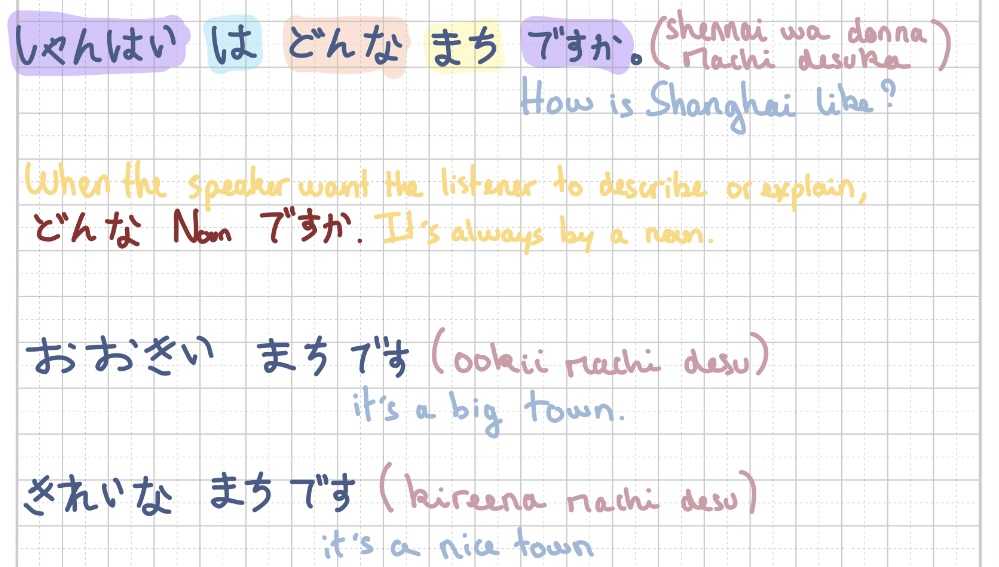 しゃんはい は どんな まち ですか。(shennai wa donna
machi desuka)
How is Shanghai like?
When the speaker want the listener to describe or explain,
どんな Noun ですか. It's always by a noun.
おおきい まちです (ookii machi desu)
it's a big town.
きれいな まちです (kireena machi desu)
it's a nice town